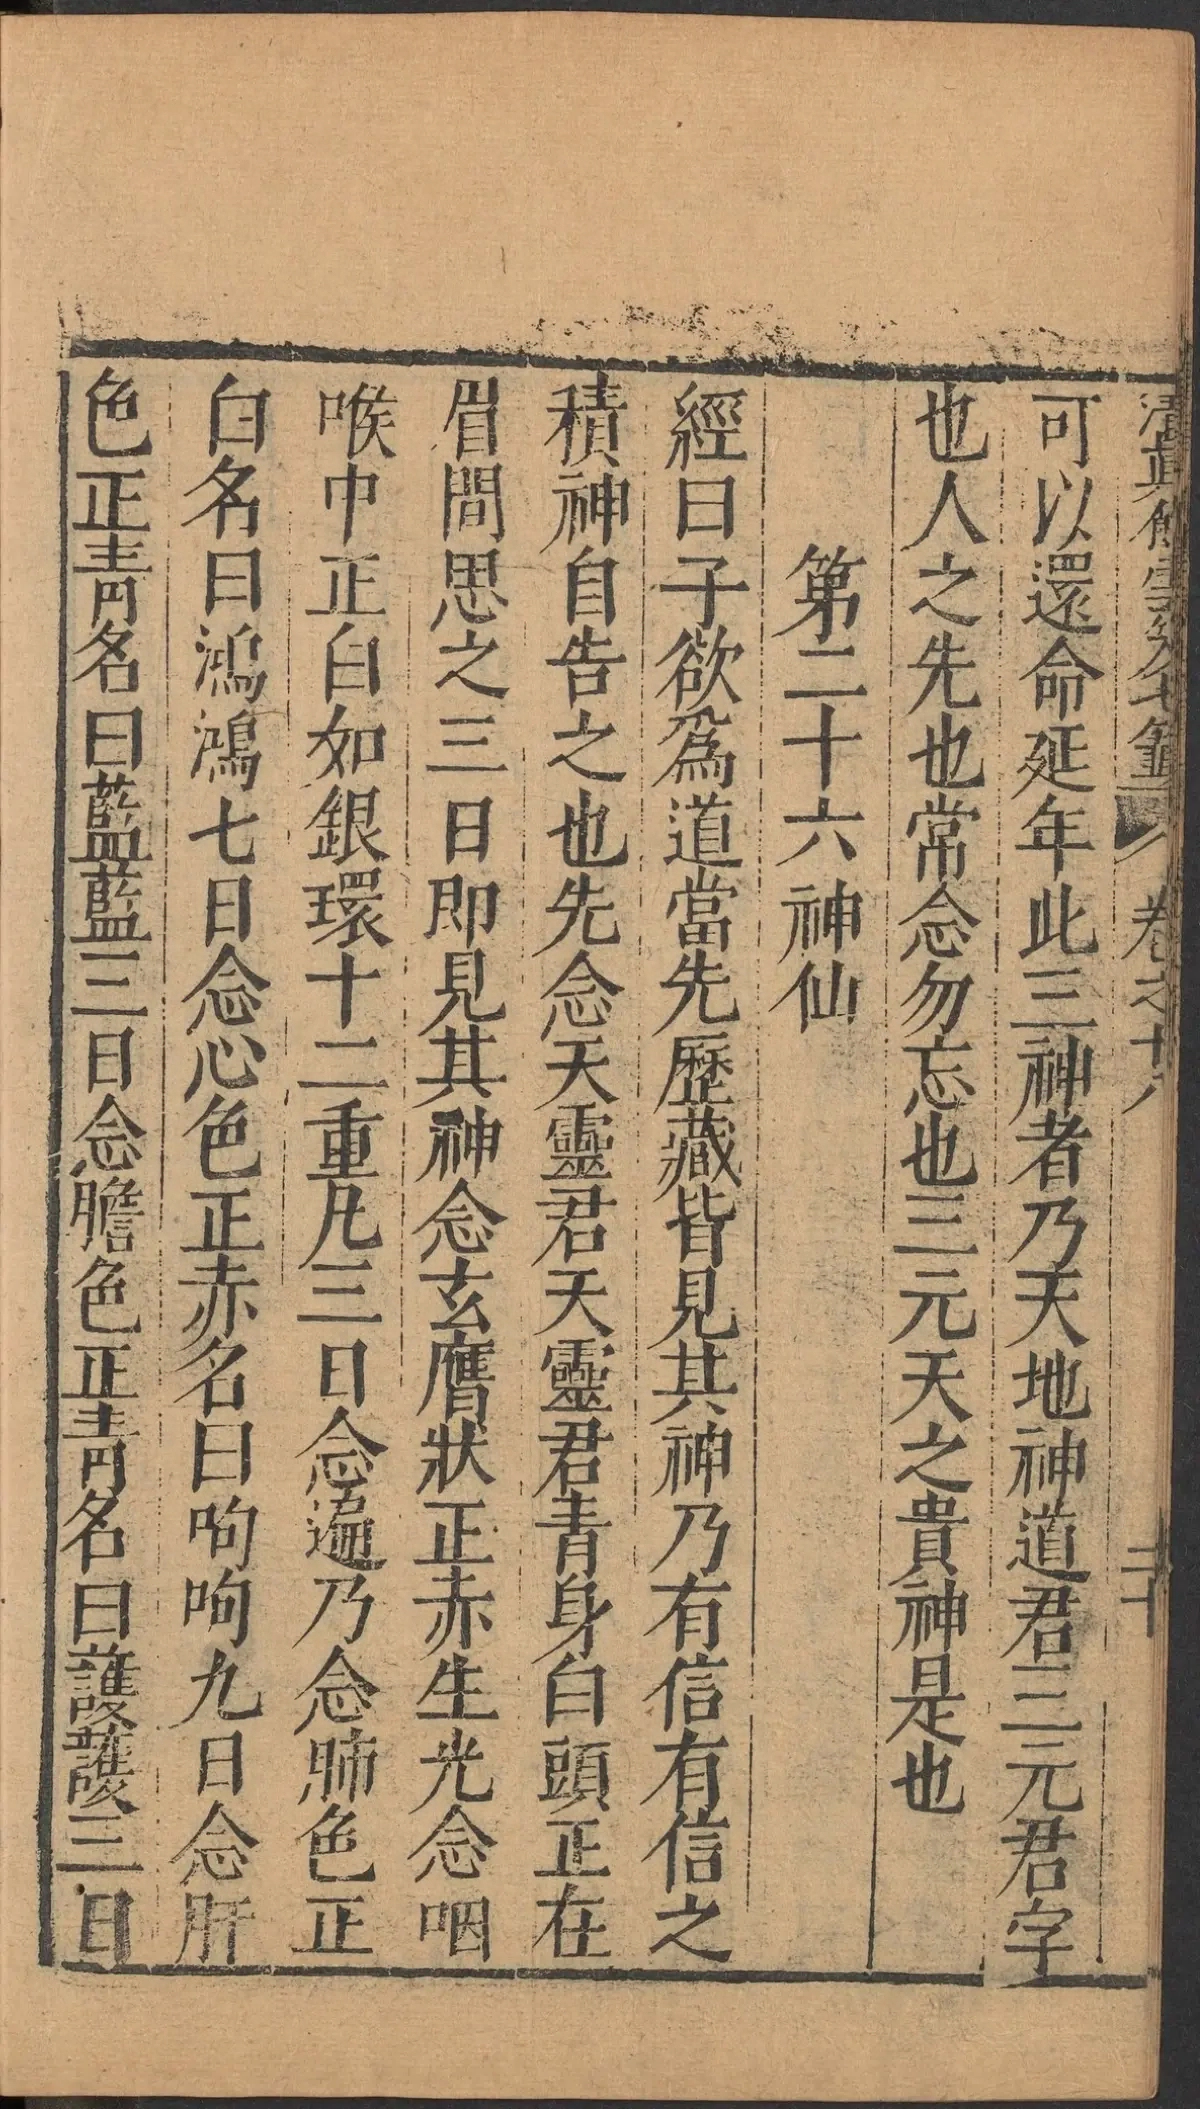 清眞館雲笈七籤 卷之十八 二十
可以還命延年此三神者乃天地神道君三元君字
也人之先也常念勿忘也三元天之貴神是也
第二十六神仙
經曰子欲爲道當先歷藏皆見其神乃有信有信之
積神自告之也先念天靈君天靈君青身白頭正在
眉間思之三日即見其神念玄膺狀正赤生光念咽
喉中正白如銀環十二重凡三日念遍乃念肺色正
白名曰鴻鴻七日念心色正赤名曰呴呴九日念肝
色正青名曰藍藍三日念膽色正青名曰護護三日